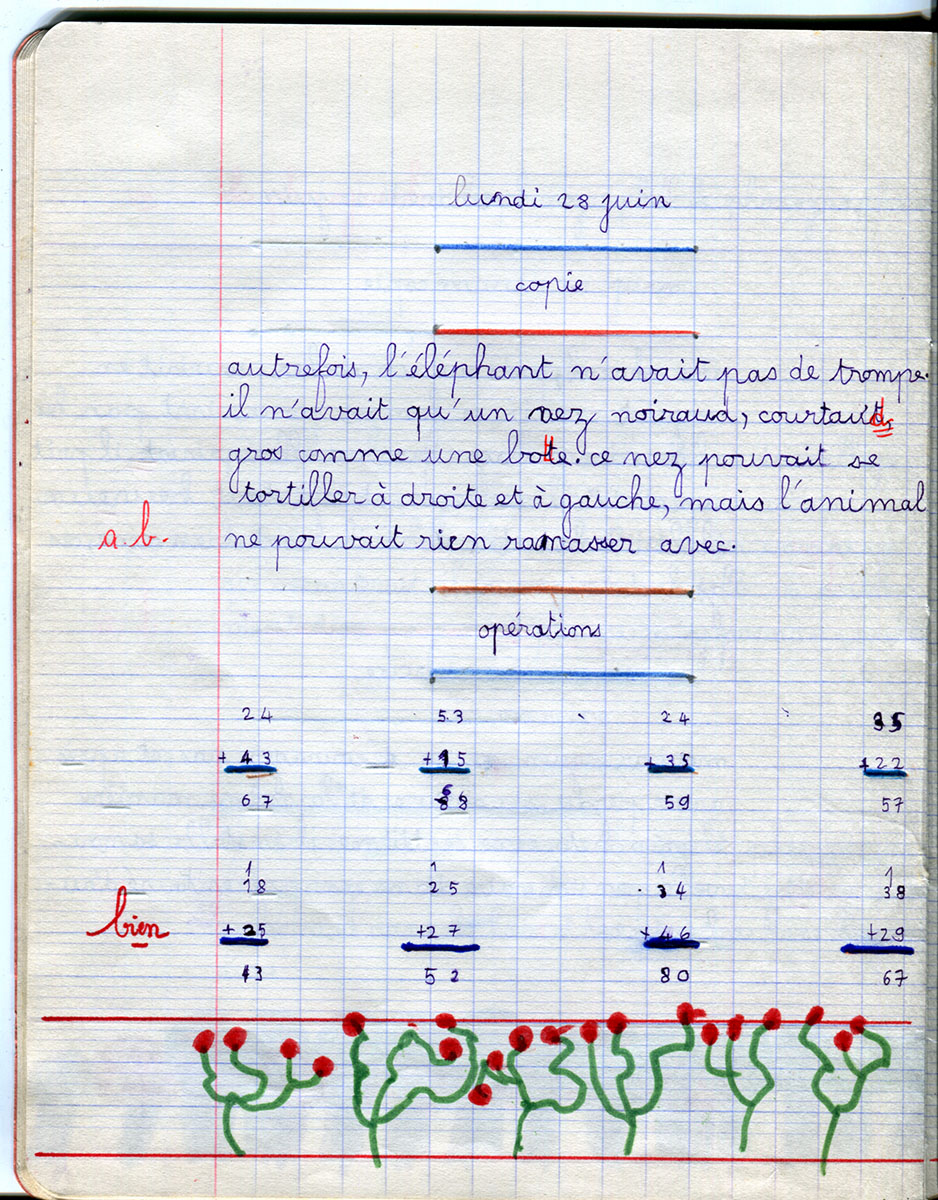 lundi 28 juin
copie
autrefois, l'éléphant n'avait pas de trompe.
il n'avait qu'un nez noiraud, courtaud,
gros comme une botte. ce nez pouvait se
tortiller à droite et à gauche, mais l'animal
a.b. ne pouvait rien ramasser avec.
opérations
24 53 24 35
+43 +15 +35 +22
67 68 59 57
1 1 1 1
18 25 34 38
bien +25 +27 +46 +29
43 52 80 67